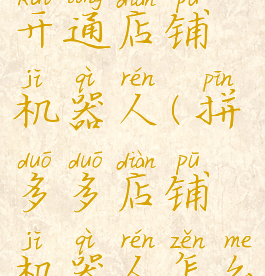 kāi tōng diàn pù
开通店铺
jī qì rén pīn
机器人(拼
duō duō diàn pù
多多店铺
jī qì rén zěn me
机器人怎么